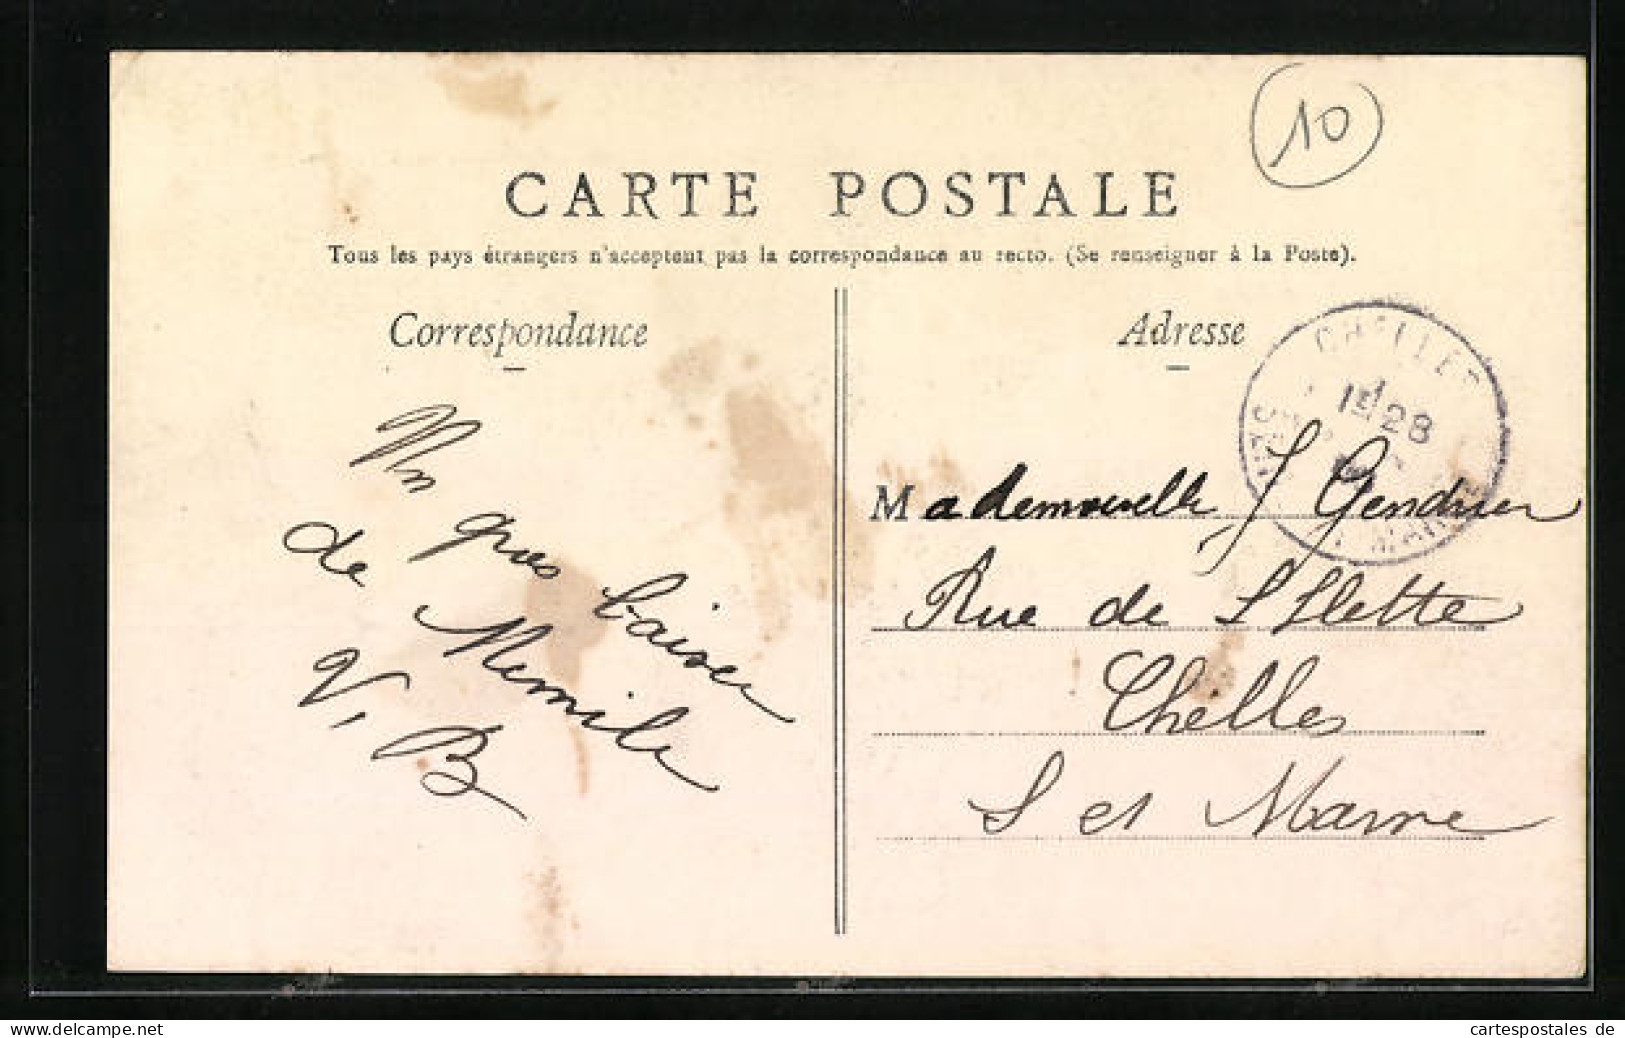 10
CARTE POSTALE
Tous les pays étrangers n'acceptent pas la correspondance au recto. (Se renseigner à la Poste).
Correspondance
Adresse
CHELLES
28
ET MARNE
Un gros baiser
de Memile
V, B
Mademoiselle J Gendrier
Rue de L'Ilette
Chelles
S et Marne
cartespostales de